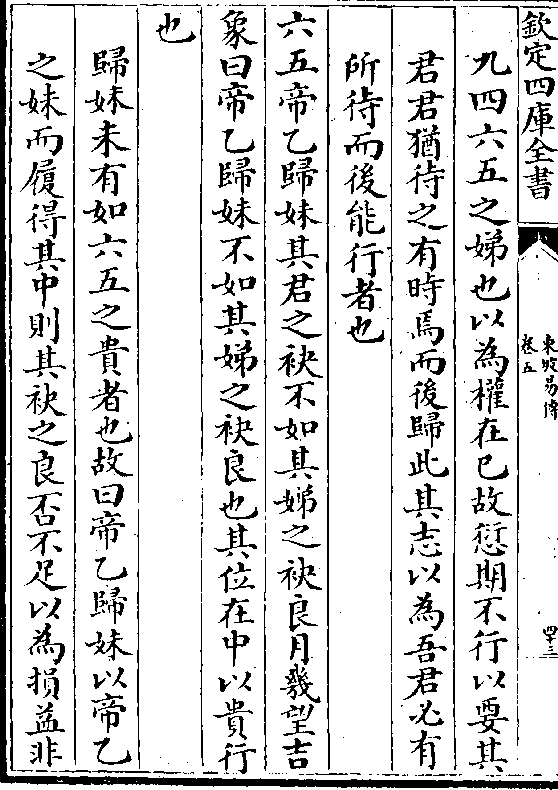 欽定四庫全書
東坡易傳
卷五
四十三
九四六五之娣也以為權在已故愆期不行以要其
君君猶待之有時焉而後歸此其志以為吾君必有
所待而後能行者也
六五帝乙歸妹其君之袂不如其娣之袂良月幾望吉
象曰帝乙歸妹不如其娣之袂良也其位在中以貴行
也
歸妹未有如六五之貴者也故曰帝乙歸妹以帝乙
之妹而履得其中則其袂之良否不足以為損益非